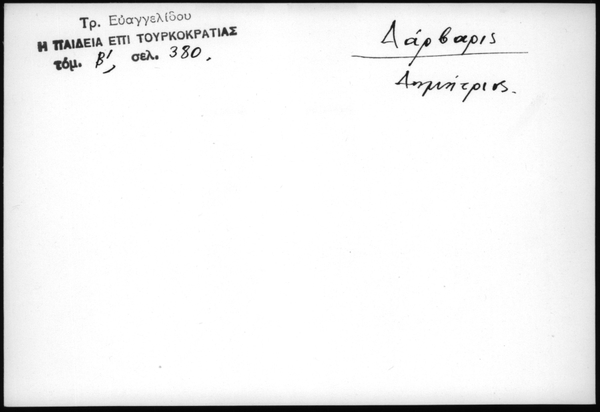 Τρ. Εὐαγγελίδου
Η ΠΑΙΔΕΙΑ ΕΠΙ ΤΟΥΡΚΟΚΡΑΤΙΑΣ
τόμ. Β', σελ. 380.
Δάρβαρις
Δημήτριος.